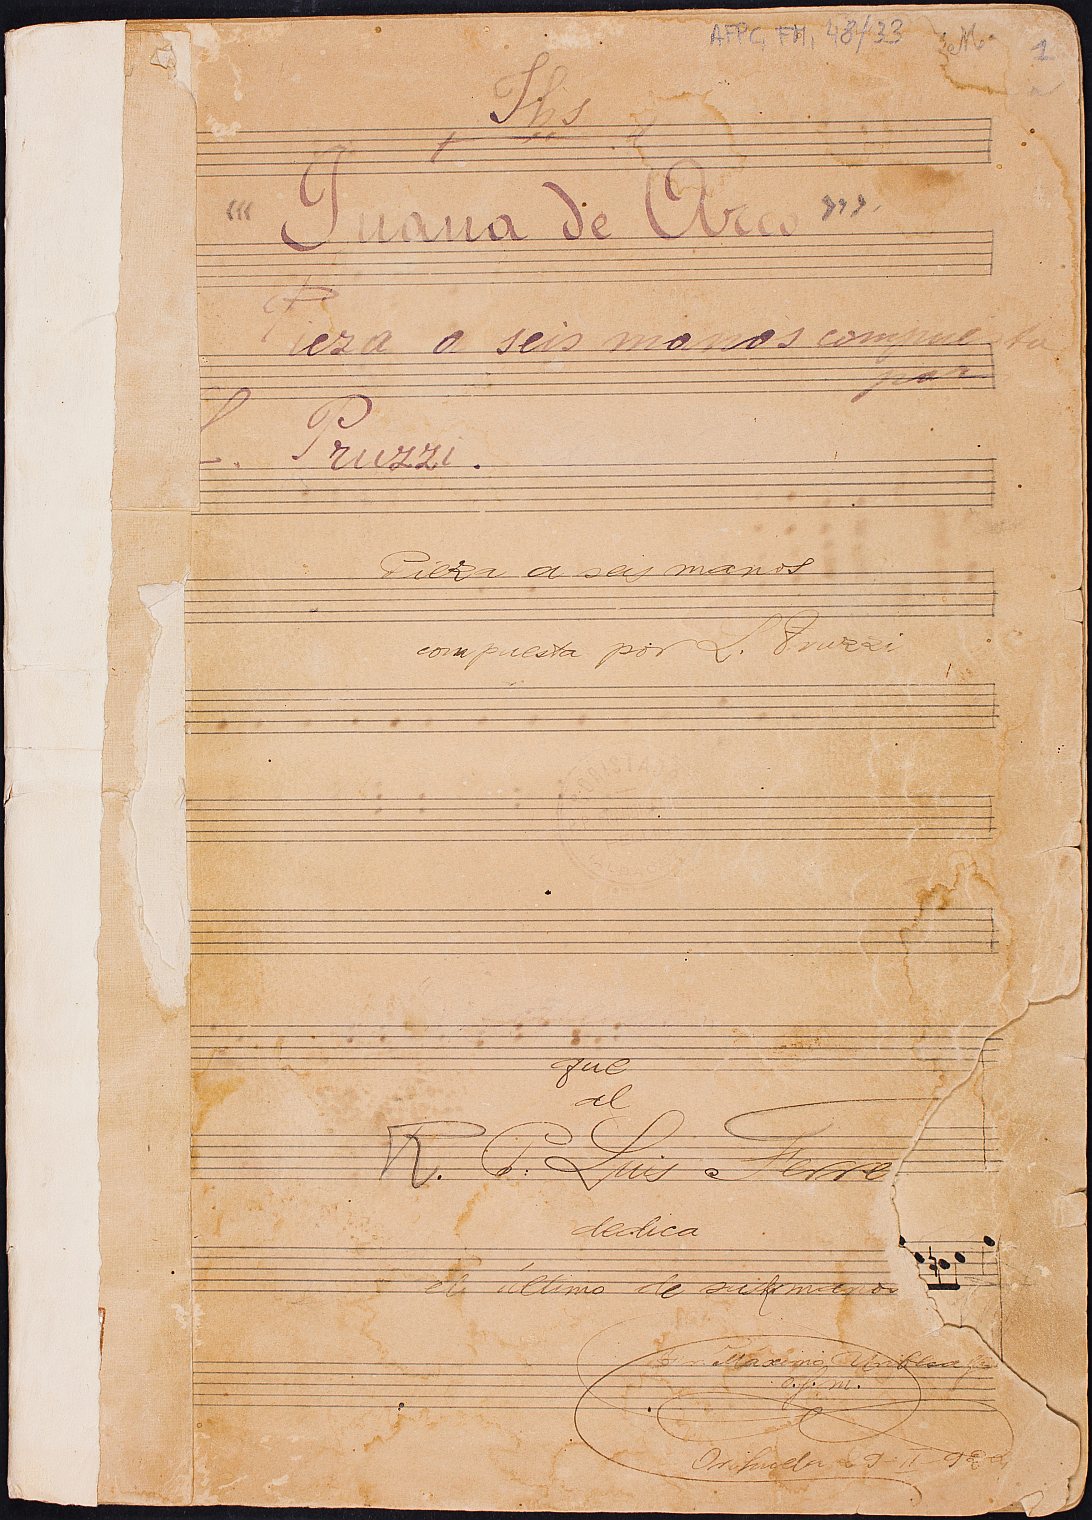 AFPC, FM, 48/33
1
Jhs
"Juana de Arco"
Pieza a seis manos compuesta
por
L. Pruzzi.
Pieza a seis manos
compuesta por L. Pruzzi
que
al
R. P. Luis Ferre
dedica
el último de sus hermanos
Fr. Maximo
o.f.m.
Orihuela